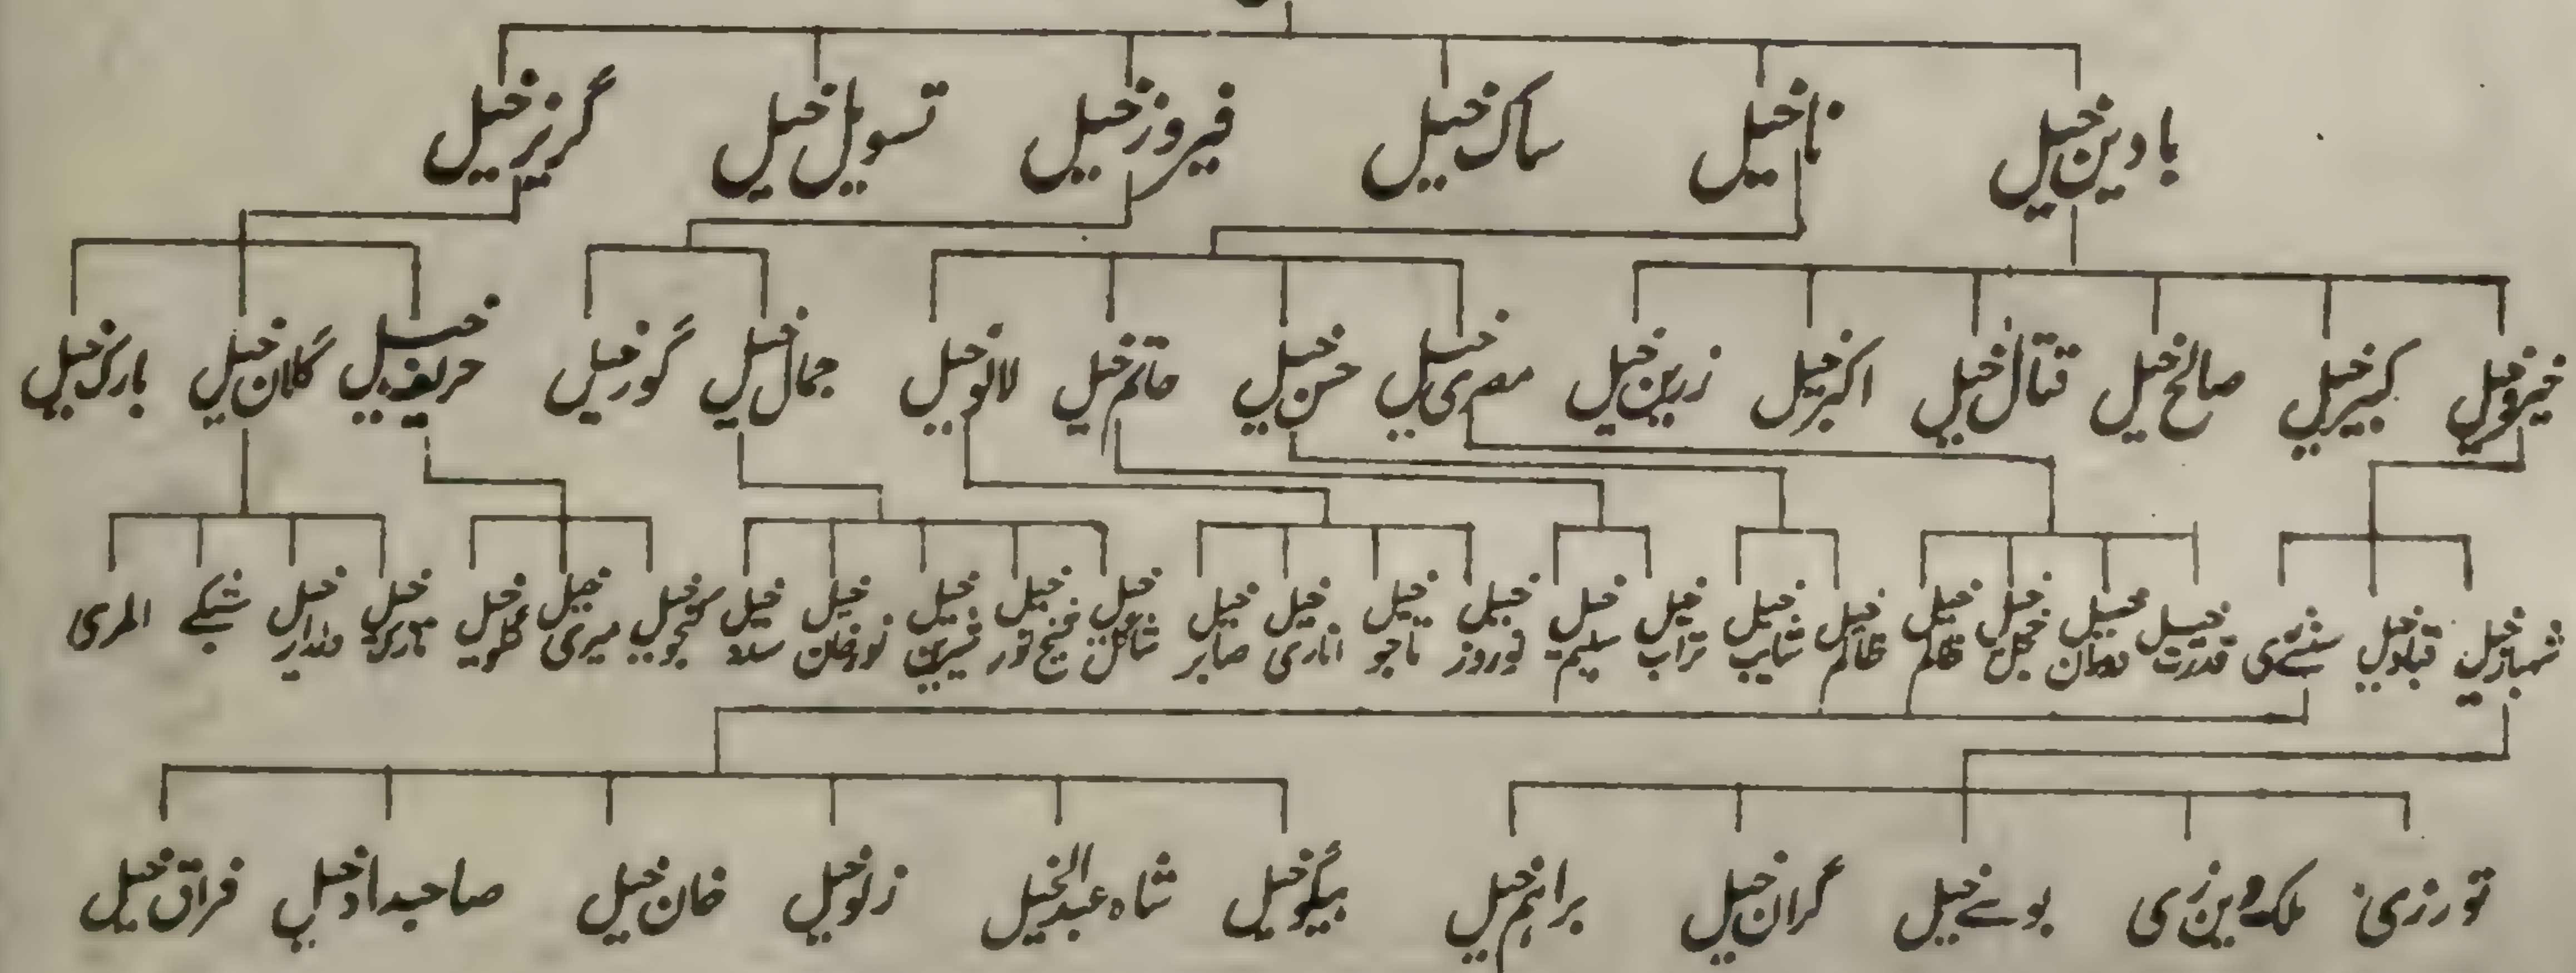 بادین خیل ناخیل ساک خیل فیروز خیل تسویل خیل گریز خیل
خیرو خیل کبیر خیل صالح خیل قتال خیل اکبر خیل زرین خیل مصری خیل حسن خیل حاتم خیل لالو خیل جمال خیل گور خیل حریف خیل گلان خیل بارک خیل
شہباز خیل قباد خیل قدرت خیل خیل خیل ظالم خیل ظالم خیل شایب خیل تراب خیل سلیم خیل نوروز خیل ناجو خیل اناری خیل صابر خیل شاگل خیل فتح نور خیل شیرین خیل نورخان خیل سدو خیل خیل میری خیل گلو خیل خیل مندار خیل المری
تورزی ملک دین زی بوسے خیل گران خیل براہم خیل بیگو خیل شاہ عبدالخیل زلو خیل خان خیل صاحبداد خیل فراق خیل